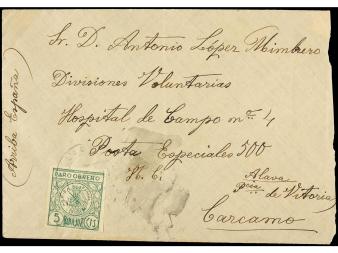 (Arriba España)
Sr. D. Antonio López Mimbrero
Divisiones Voluntarias
Hospital de Campo nº 4
Posta Especiales 500
Alava
pcia de Vitoria
Carcamo
PARO OBRERO
5 CTS